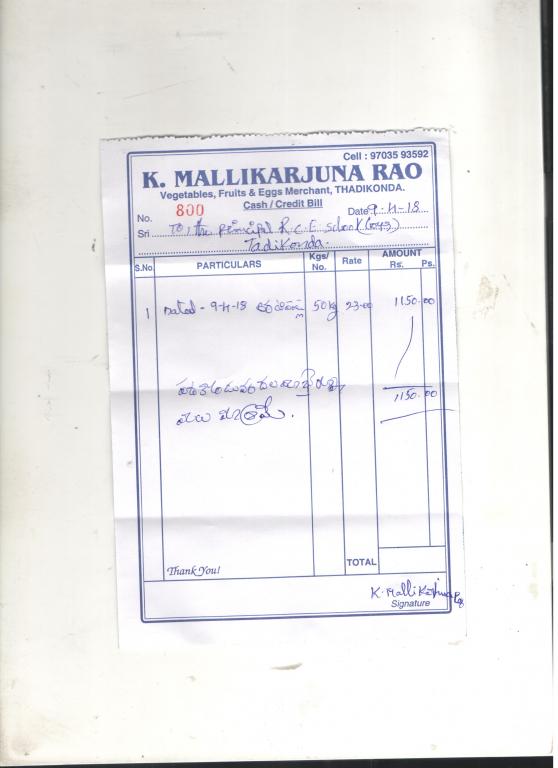 Cell : 97035 93592
K. MALLIKARJUNA RAO
Vegetables, Fruits & Eggs Merchant, THADIKONDA.
Cash / Credit Bill
No. 800 Date 9-4-18
Sri To, the principal R.C.E School (Boys)
Tadikonda.
S.No. PARTICULARS Kgs/ No. Rate AMOUNT Rs. Ps.
1 Dated - 9-4-18 50 kg 23-00 1150.00
1150.00
Thank You!
TOTAL
K. Mallikarjuna Rao
Signature